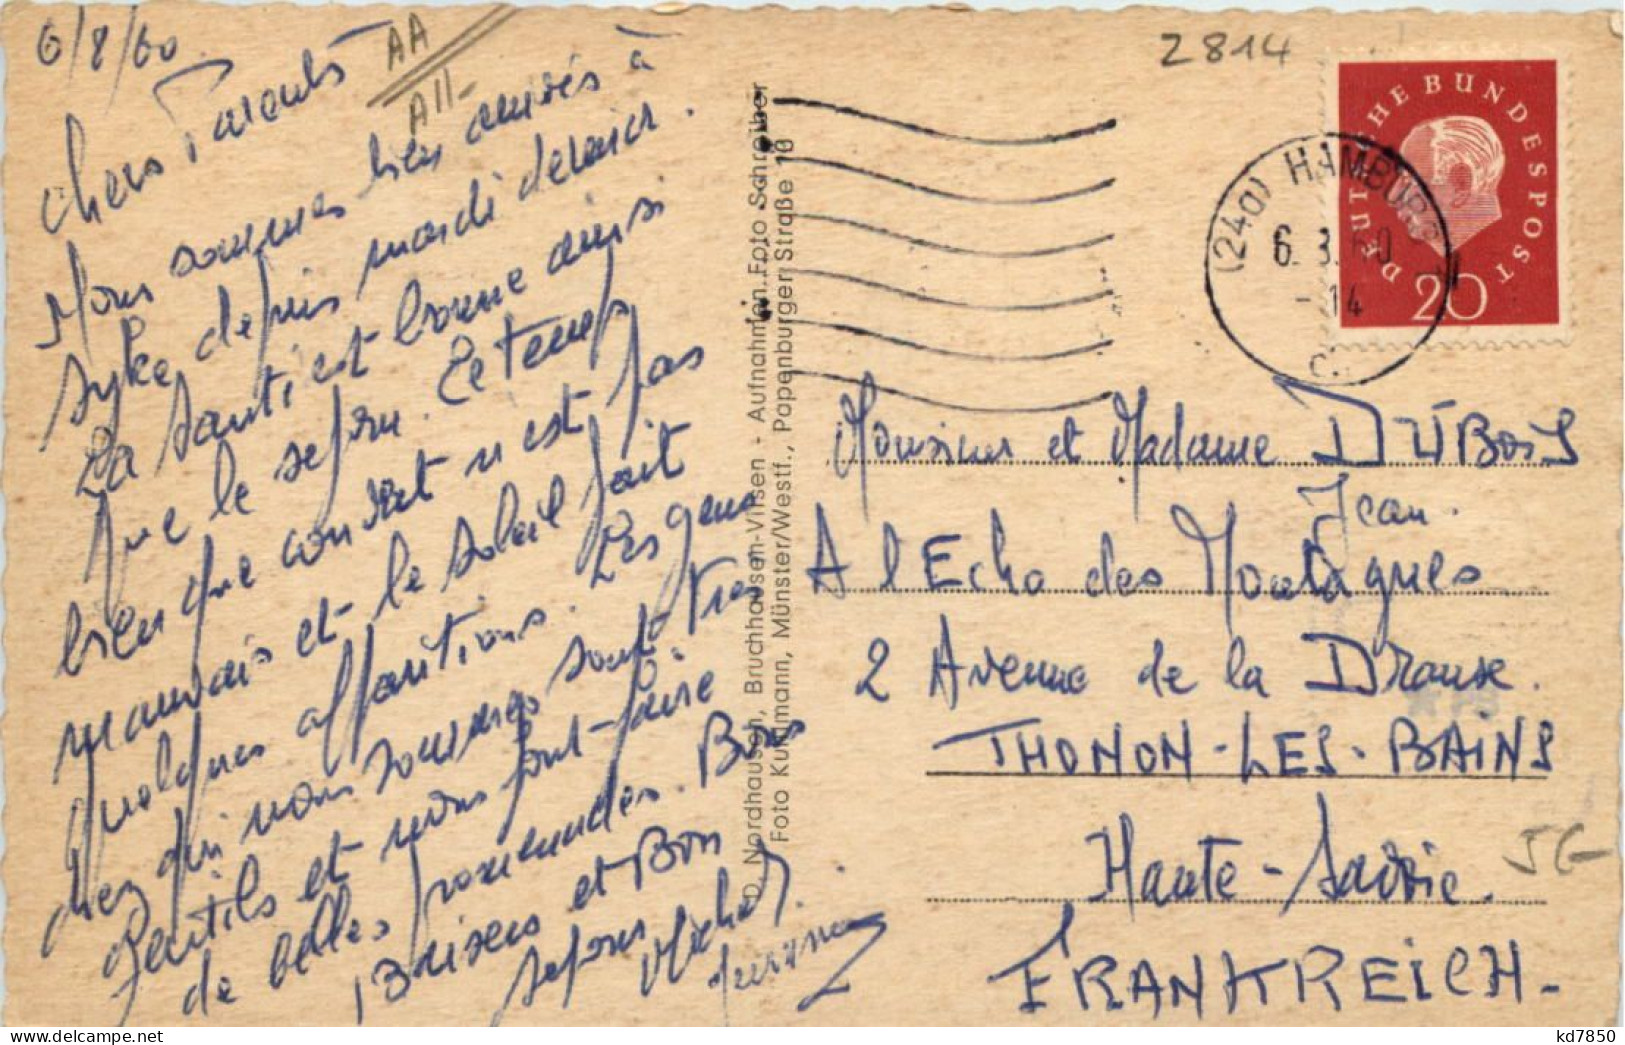 6/8/60
AA
All-
Chers Parents
Nous sommes bien arrivés à
Syke depuis mardi dernier.
La santé est bonne ainsi
que le séjour. Le temps
bien que couvert n'est pas
mauvais et le soleil fait
quelques apparitions. Les gens
chez qui nous sommes sont très
gentils et nous font faire
de belles promenades. Bons
Baisers et Bon
séjour
Michel
D. Nordhausen, Bruchhausen-Vilsen - Aufnahmen Foto Schreiber
Foto Kuhlmann, Münster/Westf., Papenburger Straße 10
2814
DEUTSCHE BUNDESPOST
20
(24a) HAMBURG
6. 8. 60
- 14
Monsieur et Madame DUBOIS
Jean.
A l Echo des Montagnes
2 Avenue de la Dranse.
THONON-LES-BAINS
Haute-Savoie.
JG
FRANKREICH-
kd7850